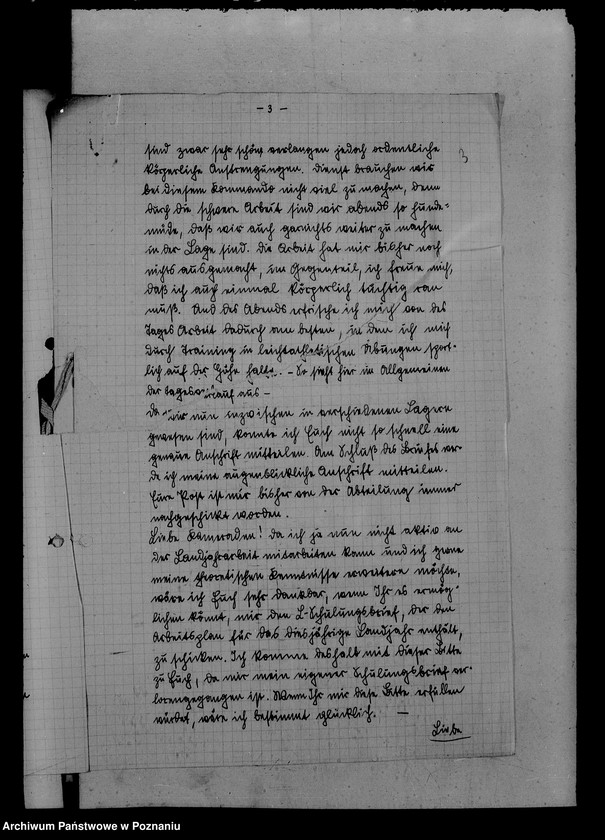 - 3 -
3
sind zwar sehr schön, verlangen jedoch ordentliche
körperliche Anstrengungen. Dienst brauchen wir
bei diesem Kommando nicht viel zu machen, denn
durch die schwere Arbeit sind wir abends so hunde=
müde, daß wir auch garnichts weiter zu machen
in der Lage sind. Die Arbeit hat mir bisher noch
nichts ausgemacht, im Gegenteil, ich freue mich,
daß ich auch einmal körperlich tüchtig ran
muß. Und des Abends erfrische ich mich von des
Tages Arbeit dadurch am besten, in dem ich mich
durch Training in leichtathletischen Übungen sport-
lich auf der Höhe halte. - So sieht hier im Allgemeinen
der Tagesverlauf aus -
Da wir nun inzwischen in verschiedenen Lagern
gewesen sind, konnte ich Euch nicht so schnell eine
genaue Anschrift mitteilen. Am Schluß des Briefes wer-
de ich meine augenblickliche Anschrift mitteilen.
Eure Post ist mir bisher von der Abteilung immer
nachgeschickt worden.
Liebe Kameraden! Da ich ja nun nicht aktiv an
der Landjahrarbeit mitarbeiten kann und ich gerne
meine theoretischen Kenntnisse erweitern möchte,
wäre ich Euch sehr dankbar, wenn Ihr es ermög-
lichen könnt, mir den L-Schulungsbrief, der den
Arbeitsplan für das diesjährige Landjahr enthält,
zu schicken. Ich komme deshalb mit dieser Bitte
zu Euch, da mir mein eigener Schulungsbrief ver-
lorengegangen ist. Wenn Ihr mir diese Bitte erfüllen
würdet, wäre ich bestimmt glücklich. -
Liebe
Archiwum Państwowe w Poznaniu